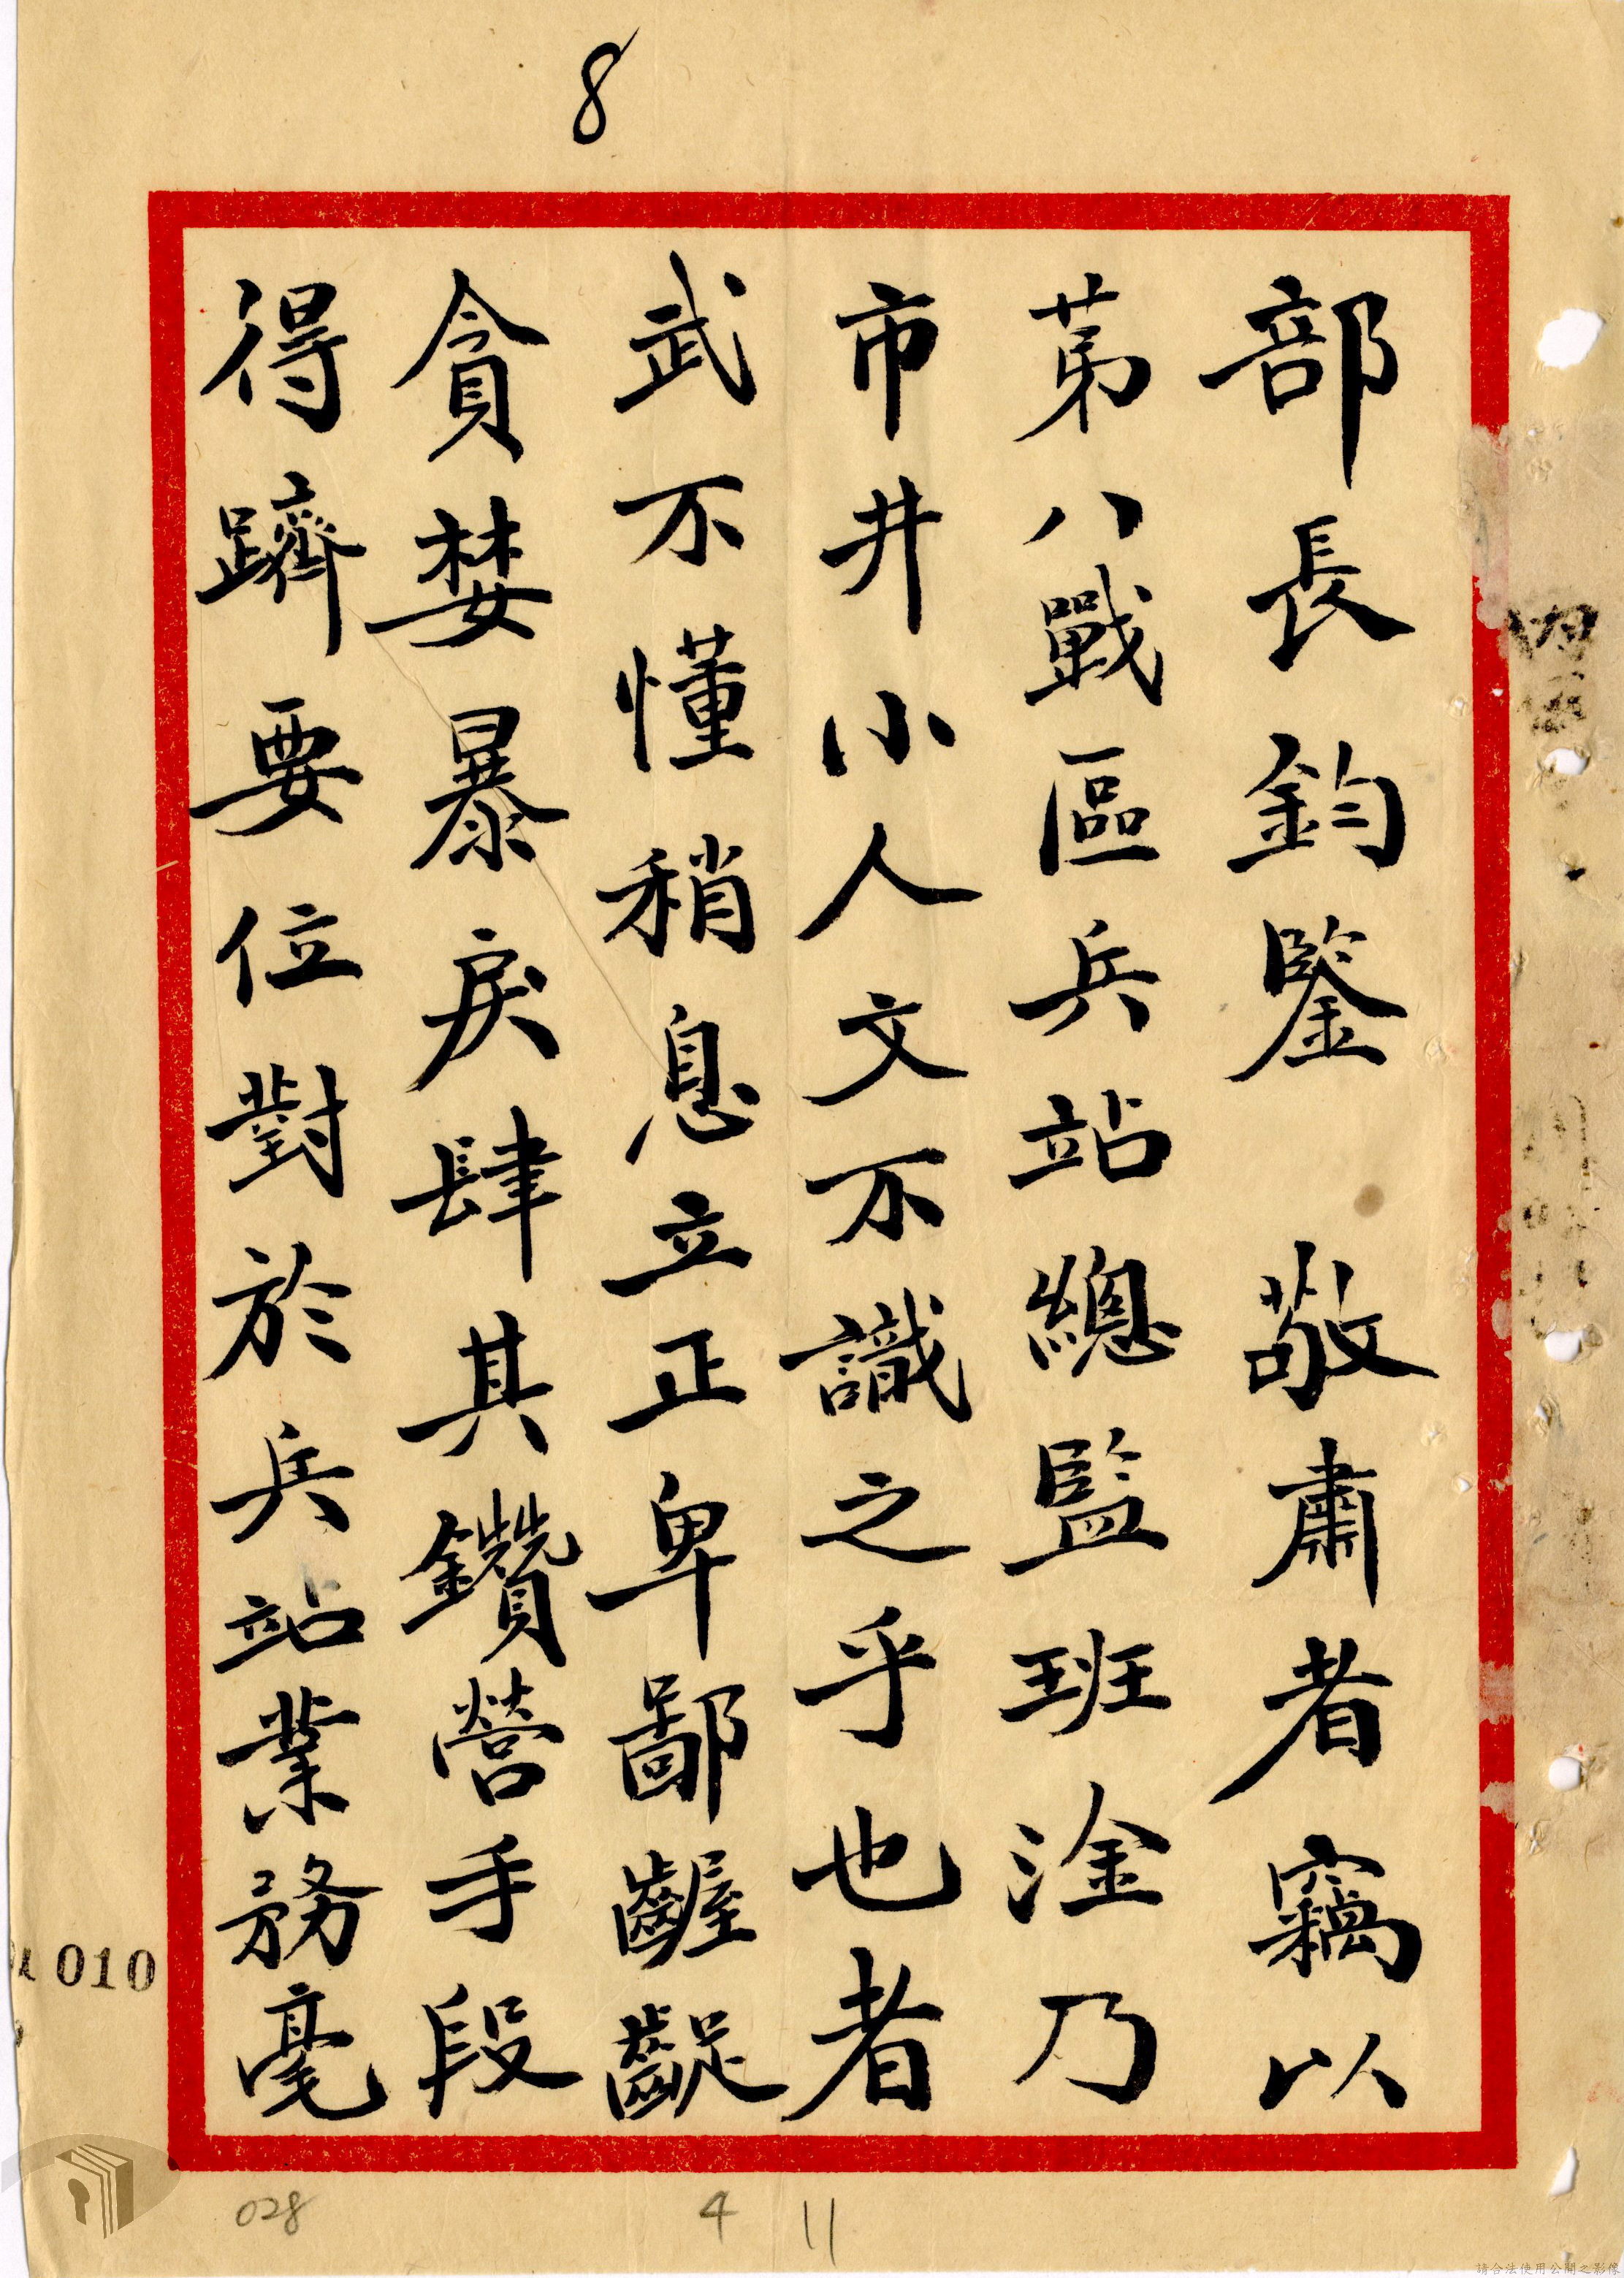 8
部長鈞鑒　敬肅者竊以
苐八戰區兵站總監班淦乃
市井小人文不識之乎也者
武不懂稍息立正卑鄙齷齪
貪婪暴戾肆其鑽營手段
得躋要位對於兵站業務毫
010
028
4
11
請合法使用公開之影像